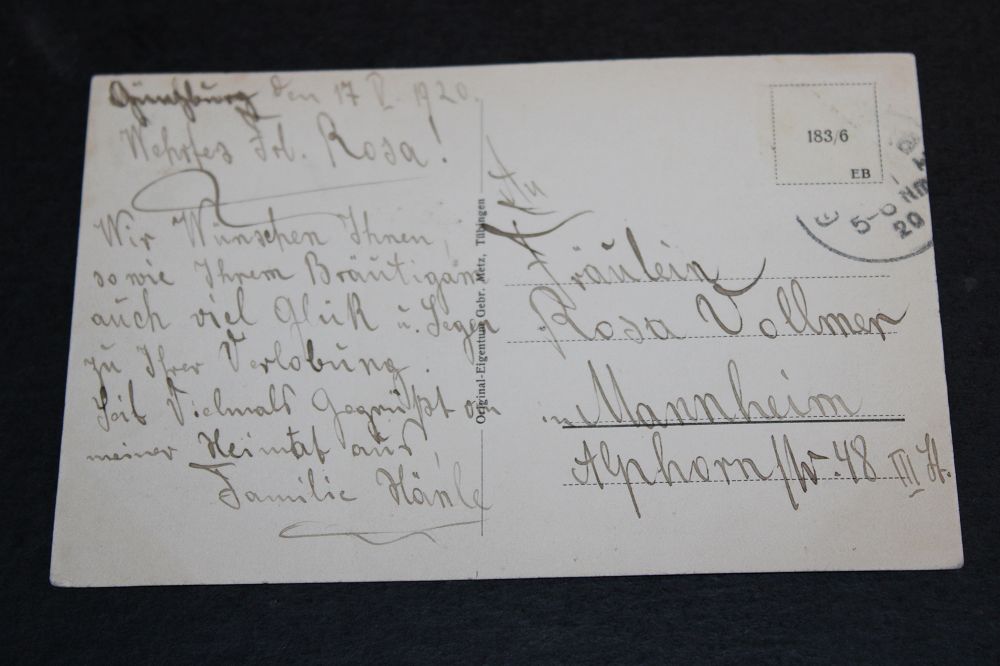 Günzburg den 17 V. 1920.
Wehrtes Frl. Rosa!
Wir Wünschen Ihnen,
sowie Ihrem Bräutigam
auch viel Glük u. Segen
zu Ihrer Verlobung.
Seit Vielmals Gegrüßt von
meiner Heimat aus,
Familie Hänle
Original-Eigentum Gebr. Metz, Tübingen
183/6
EB
5-6 Nm
20
Fräulein
Rosa Vollmer
in Mannheim
Alphornstr. 48 III St.